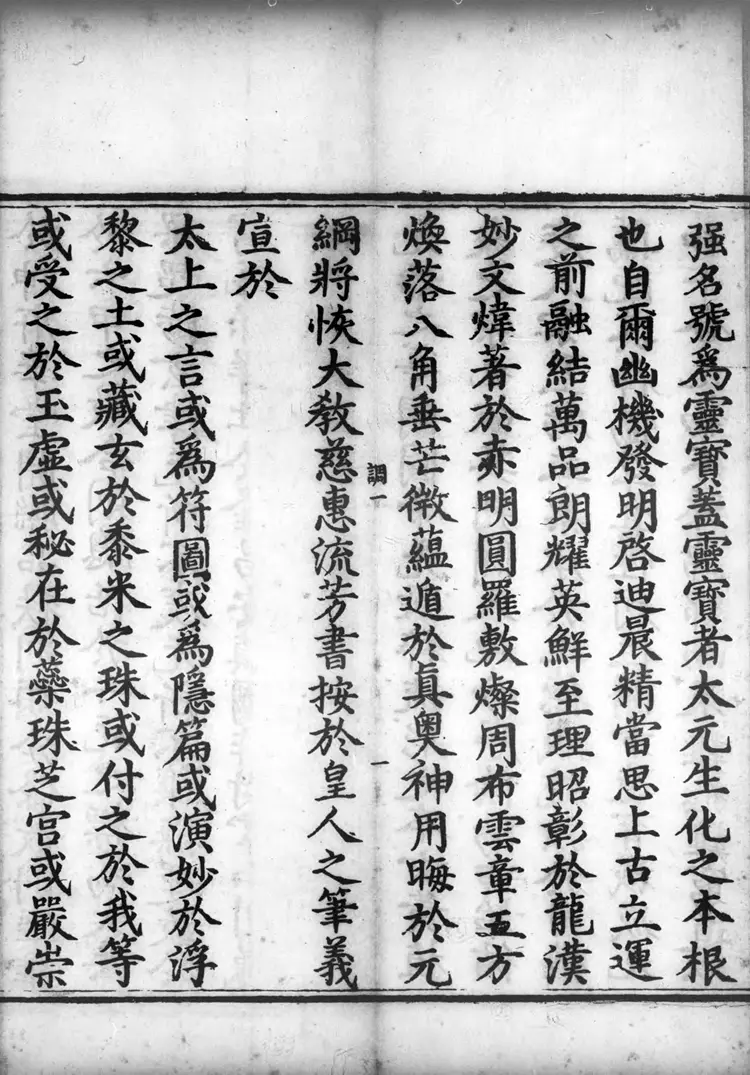 强名號爲靈寶蓋靈寶者太元生化之本根
也自爾幽機發明啓迪晨精當思上古立運
之前融結萬品朗耀英鮮至理昭彰於龍漢
妙文煒著於赤明圓羅敷燦周布雲章五方
煥落八角垂芒微蘊遁於真奧神用晦於元
調一
一
綱將恢大教慈惠流芳書按於皇人之筆義
宣於
太上之言或爲符圖或爲隱篇或演妙於浮
黎之土或藏玄於黍米之珠或付之於我等
或受之於玉虛或秘在於蘂珠芝宫或嚴崇